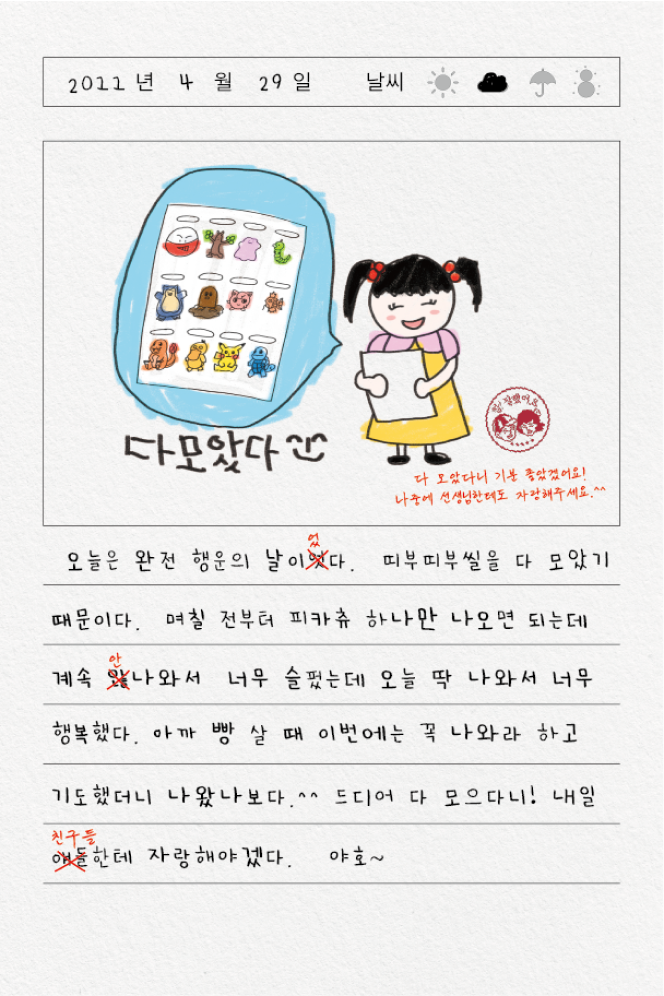 2022년 4월 29일 날씨
다모았다 ^^
참 잘했어요
다 모았다니 기분 좋았겠어요!
나중에 선생님한테도 자랑해주세요.^^
었
오늘은 완전 행운의 날이엿다. 띠부띠부씰을 다 모았기
때문이다. 며칠 전부터 피카츄 하나만 나오면 되는데
안
계속 않나와서 너무 슬펐는데 오늘 딱 나와서 너무
행복했다. 아까 빵 살 때 이번에는 꼭 나와라 하고
기도했더니 나왔나보다.^^ 드디어 다 모으다니! 내일
친구들
애들한테 자랑해야겠다. 야호~